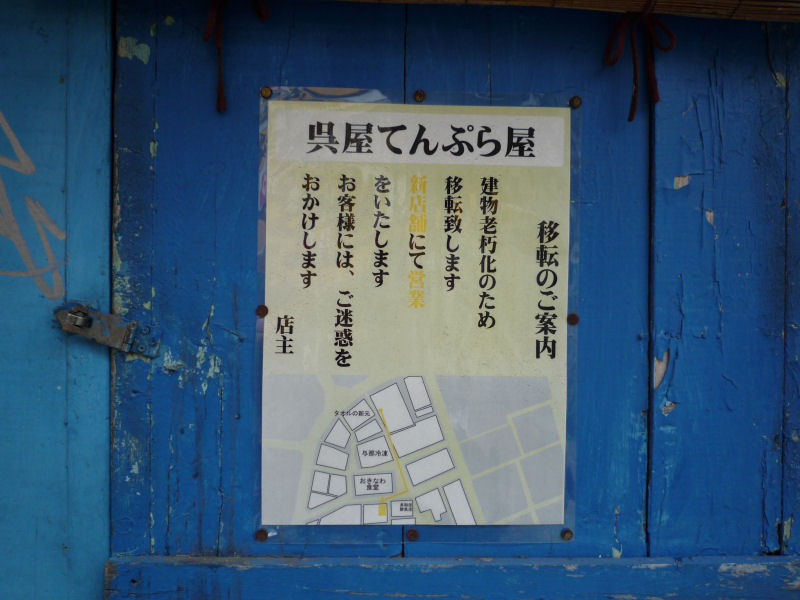 呉屋てんぷら屋
移転のご案内
建物老朽化のため
移転致します
新店舗にて営業
をいたします
お客様には、ご迷惑を
おかけします
店主
タオルの新元
与那冷凍
おきなわ
食堂